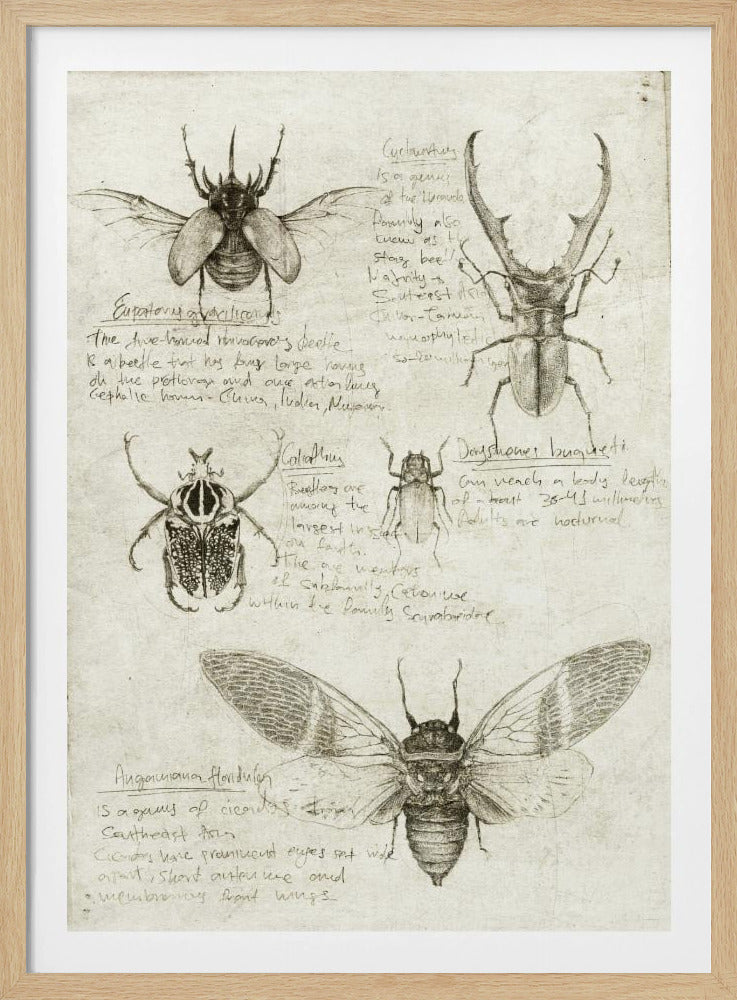 Cyclommatus
is a genus
of the
family also
known as th
stag beetle
Majority -
Southeast Asia
China - Taiwan
Eupatorus gracilicornis
The five-horned rhinoceros beetle
is a beetle that has four large horns
on the prothorax and one extra long
Cephalic horn - China, India, Myanmar.
Goliathus
Beetles are
among the
largest insect
on Earth.
The are members
of subfamily, Cetoniinae
within the family Scarabaeidae.
Dorysthenes buqueti
can reach a body length
of about 35-41 millimeters
Adults are nocturnal
Angamiana floridula
is a genus of cicadas from
Southeast Asia
Cicadas have prominent eyes set wide
apart, short antennae and
membranous front wings